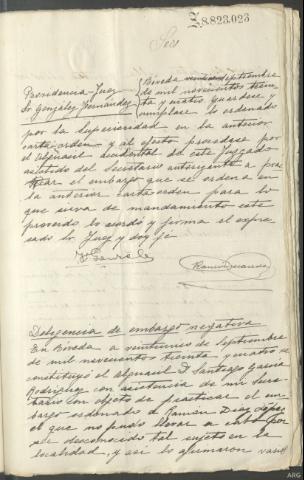 Z.8.823.023
Seis
Providencia Juez
Sr González Fernández
Bóveda septiembre
de mil novecientos trein
ta y cuatro. Guardese y
cumplase lo ordenado
por la Superioridad en la anterior
carta-orden y al efecto procedase por
el alguacil accidental de este Juzgado
asistido del Secretario autorizante a prac
ticar el embargo que se ordena en
la anterior carta orden para lo
que sirva de mandamiento este
proveido lo acordó y firma el expre
sado Sr Juez y doy fe
Ramón
Deligencia de embargo negativa
En Bóveda a veintiuno de septiembre
de mil novecientos treinta y cuatro se
constituyó el alguacil D Santiago García
Rodriguez con asistencia de mi Secre
tario con objeto de practicar el em
bargo ordenado a Ramón Diaz López
el que no pudo llevar a cabo por
ser desconocido tal sujeto en la
localidad, y asi lo afirmaron varios
ARG